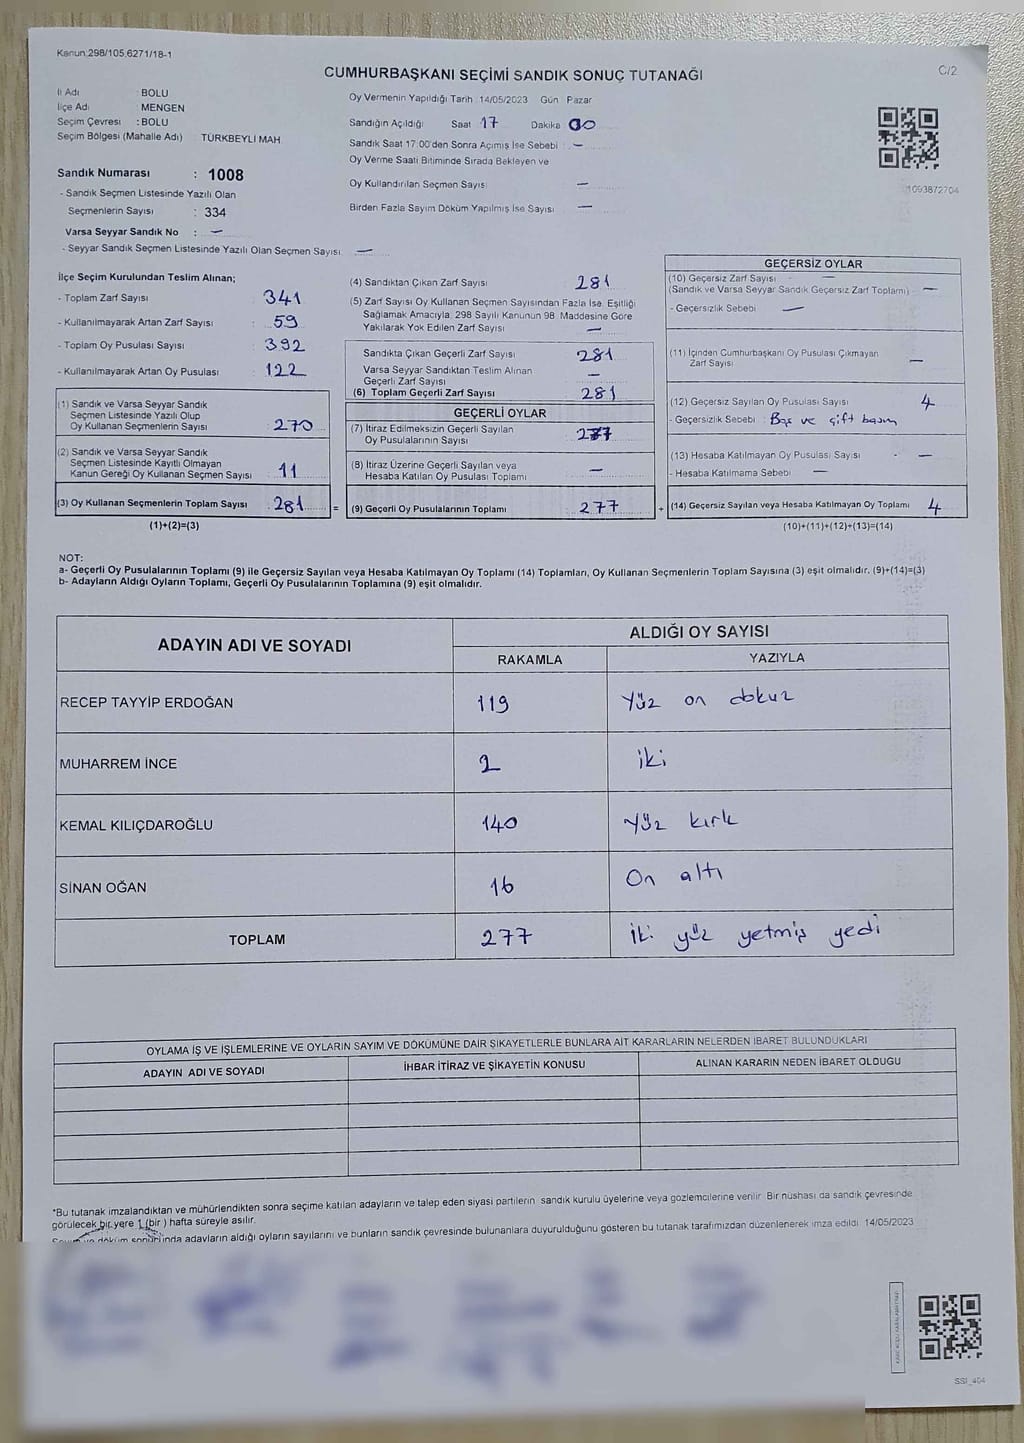 Kanun:298/105,6271/18-1
CUMHURBAŞKANI SEÇİMİ SANDIK SONUÇ TUTANAĞI
C/2
İl Adı : BOLU
İlçe Adı : MENGEN
Seçim Çevresi : BOLU
Seçim Bölgesi (Mahalle Adı) TÜRKBEYLİ MAH
Sandık Numarası : 1008
- Sandık Seçmen Listesinde Yazılı Olan
Seçmenlerin Sayısı : 334
Varsa Seyyar Sandık No : —
- Seyyar Sandık Seçmen Listesinde Yazılı Olan Seçmen Sayısı: —
Oy Vermenin Yapıldığı Tarih :14/05/2023 Gün :Pazar
Sandığın Açıldığı Saat :17 Dakika :00
Sandık Saat 17.00'den Sonra Açımış İse Sebebi : —
Oy Verme Saati Bitiminde Sırada Bekleyen ve
Oy Kullandırılan Seçmen Sayısı —
Birden Fazla Sayım Döküm Yapılmış İse Sayısı —
1093872704
İlçe Seçim Kurulundan Teslim Alınan;
- Toplam Zarf Sayısı : 341
- Kullanılmayarak Artan Zarf Sayısı : 59
- Toplam Oy Pusulası Sayısı : 392
- Kullanılmayarak Artan Oy Pusulası : 122
(1) Sandık ve Varsa Seyyar Sandık
Seçmen Listesinde Yazılı Olup
Oy Kullanan Seçmenlerin Sayısı : 270
(2) Sandık ve Varsa Seyyar Sandık
Seçmen Listesinde Kayıtlı Olmayan
Kanun Gereği Oy Kullanan Seçmen Sayısı : 11
(3) Oy Kullanan Seçmenlerin Toplam Sayısı : 281 =
(1)+(2)=(3)
(4) Sandıktan Çıkan Zarf Sayısı : 281
(5) Zarf Sayısı Oy Kullanan Seçmen Sayısından Fazla İse, Eşitliği
Sağlamak Amacıyla, 298 Sayılı Kanunun 98. Maddesine Göre
Yakılarak Yok Edilen Zarf Sayısı : —
Sandıkta Çıkan Geçerli Zarf Sayısı : 281
Varsa Seyyar Sandıktan Teslim Alınan
Geçerli Zarf Sayısı : —
(6) Toplam Geçerli Zarf Sayısı : 281
GEÇERLİ OYLAR
(7) İtiraz Edilmeksizin Geçerli Sayılan
Oy Pusulalarının Sayısı : 277
(8) İtiraz Üzerine Geçerli Sayılan veya
Hesaba Katılan Oy Pusulası Toplamı : —
(9) Geçerli Oy Pusulalarının Toplamı : 277 +
GEÇERSİZ OYLAR
(10) Geçersiz Zarf Sayısı —
(Sandık ve Varsa Seyyar Sandık Geçersiz Zarf Toplamı) : —
- Geçersizlik Sebebi : —
(11) İçinden Cumhurbaşkanı Oy Pusulası Çıkmayan
Zarf Sayısı —
(12) Geçersiz Sayılan Oy Pusulası Sayısı : 4
- Geçersizlik Sebebi : Boş ve çift basım
(13) Hesaba Katılmayan Oy Pusulası Sayısı : —
- Hesaba Katılmama Sebebi : —
(14) Geçersiz Sayılan veya Hesaba Katılmayan Oy Toplamı : 4
(10)+(11)+(12)+(13)=(14)
NOT:
a- Geçerli Oy Pusulalarının Toplamı (9) ile Geçersiz Sayılan veya Hesaba Katılmayan Oy Toplamı (14) Toplamları, Oy Kullanan Seçmenlerin Toplam Sayısına (3) eşit olmalıdır. (9)+(14)=(3)
b- Adayların Aldığı Oyların Toplamı, Geçerli Oy Pusulalarının Toplamına (9) eşit olmalıdır.
ADAYIN ADI VE SOYADI
ALDIĞI OY SAYISI
RAKAMLA YAZIYLA
RECEP TAYYİP ERDOĞAN 119 Yüz on dokuz
MUHARREM İNCE 2 iki
KEMAL KILIÇDAROĞLU 140 Yüz kırk
SİNAN OĞAN 16 On altı
TOPLAM 277 iki yüz yetmiş yedi
OYLAMA İŞ VE İŞLEMLERİNE VE OYLARIN SAYIM VE DÖKÜMÜNE DAİR ŞİKAYETLERLE BUNLARA AİT KARARLARIN NELERDEN İBARET BULUNDUKLARI
ADAYIN ADI VE SOYADI İHBAR İTİRAZ VE ŞİKAYETİN KONUSU ALINAN KARARIN NEDEN İBARET OLDUĞU
*Bu tutanak imzalandıktan ve mühürlendikten sonra seçime katılan adayların ve talep eden siyasi partilerin sandık kurulu üyelerine veya gözlemcilerine verilir. Bir nüshası da sandık çevresinde
görülecek bir yere 1 (bir) hafta süreyle asılır.
Sayım ve döküm sonucunda adayların aldığı oyların sayılarını ve bunların sandık çevresinde bulunanlara duyurulduğunu gösteren bu tutanak tarafımızdan düzenlenerek imza edildi. 14/05/2023
SSI_404